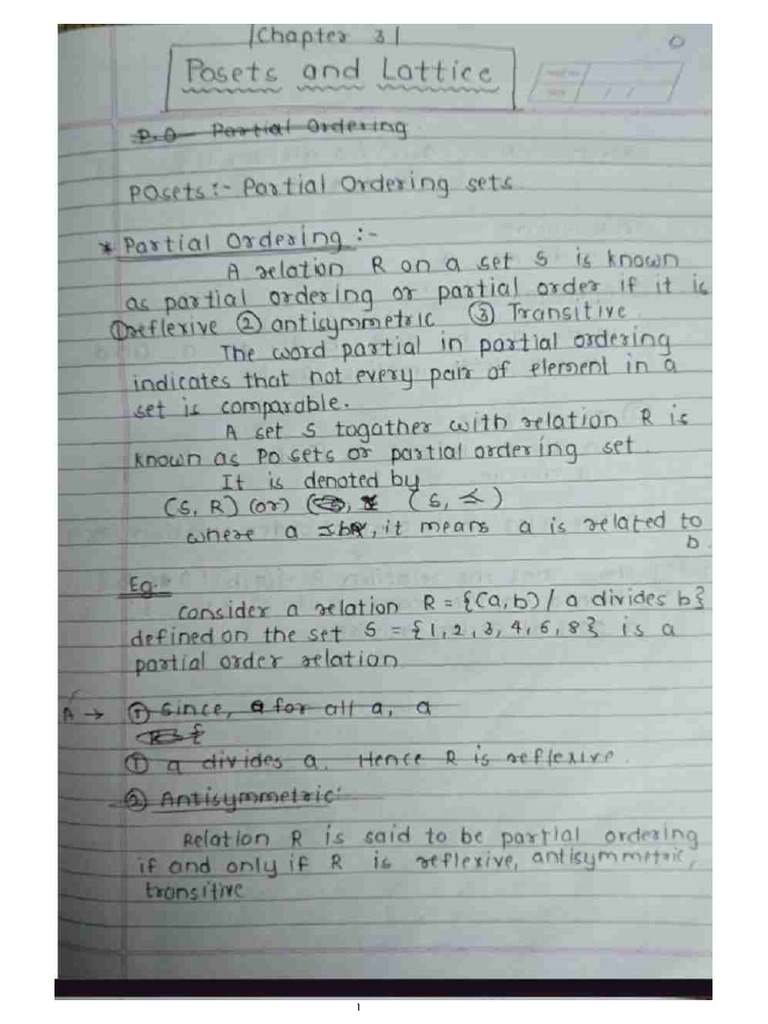 |Chapter 3|
Posets and Lattice
P.O Partial Ordering
POsets:- Partial Ordering sets
* Partial Ordering :-
A relation R on a set S is known
as partial ordering or partial order if it is
① reflexive ② antisymmetric ③ Transitive
The word partial in partial ordering
indicates that not every pair of element in a
set is comparable.
A set S togather with relation R is
known as PO sets or partial ordering set
It is denoted by
(S, R) (or) (S, ≼)
where a ≼ b, it means a is related to
b.
Eg:-
Consider a relation R = {(a,b) / a divides b}
defined on the set S = {1, 2, 3, 4, 6, 8} is a
partial order relation
A → ① Since, for all a, a
① a divides a. Hence R is reflexive.
② Antisymmetric:-
Relation R is said to be partial ordering
if and only if R is reflexive, antisymmetric,
transitive
1